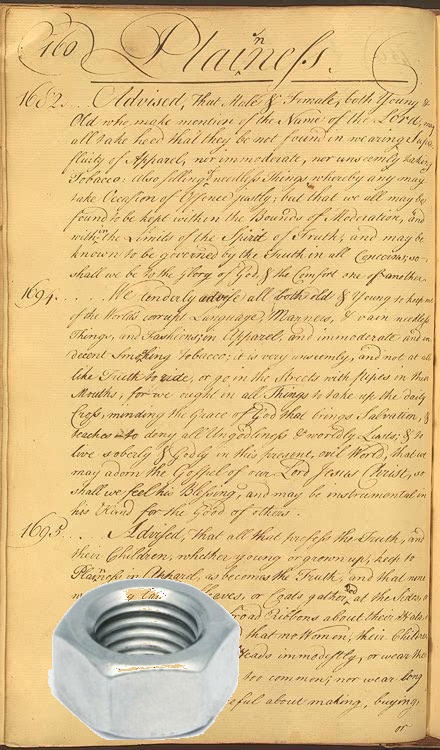 160 Plainness.
1682... Advised, That Male & Female, both Young &
Old who make mention of the Name of the Lord, may
all take heed that they be not found in wearing Supr
fluity of Apparel, nor immoderate, nor unseemly taking
Tobacco: Also selling needless Things whereby any may
take Occasion of Offence justly; but that we all may be
found to be kept within the Bounds of Moderation, and
within the Limits of the Spirit of Truth; and may be
known to be governed by the Truth in all Concerns; so
shall we be to the Glory of God, & the Comfort one of another.
1694.... We tenderly advise all both old & Young to keep out
of the World's corrupt Language, Manners, & vain needless
Things, and Fashions, in Apparel, and immoderate and in
decent Smoking Tobacco; it is very unseemly, and not at all
like Truth to ride, or go in the Streets with pipes in their
Mouths, for we ought in all Things to take up the daily
Cross, minding the Grace of God that brings Salvation, &
teaches to deny all Ungodliness & worldly Lusts, & to
live soberly & Godly in this present, evil World, that we
may adorn the Gospel of our Lord Jesus Christ, so
shall we feel his Blessing, and may be instrumental in
his Hand for the Good of others.
1695... Advised, That all that profess the Truth, and
their Children, whether young or grown up, keep to
Plainness in Apparel, as becomes the Truth, and that none
or Coats gather'd at the Sides, or
road Ribbons about their Hats
that no Women, their Children
Heads immodestly, or wear their
too common; nor wear long
eful about making, buying,
or